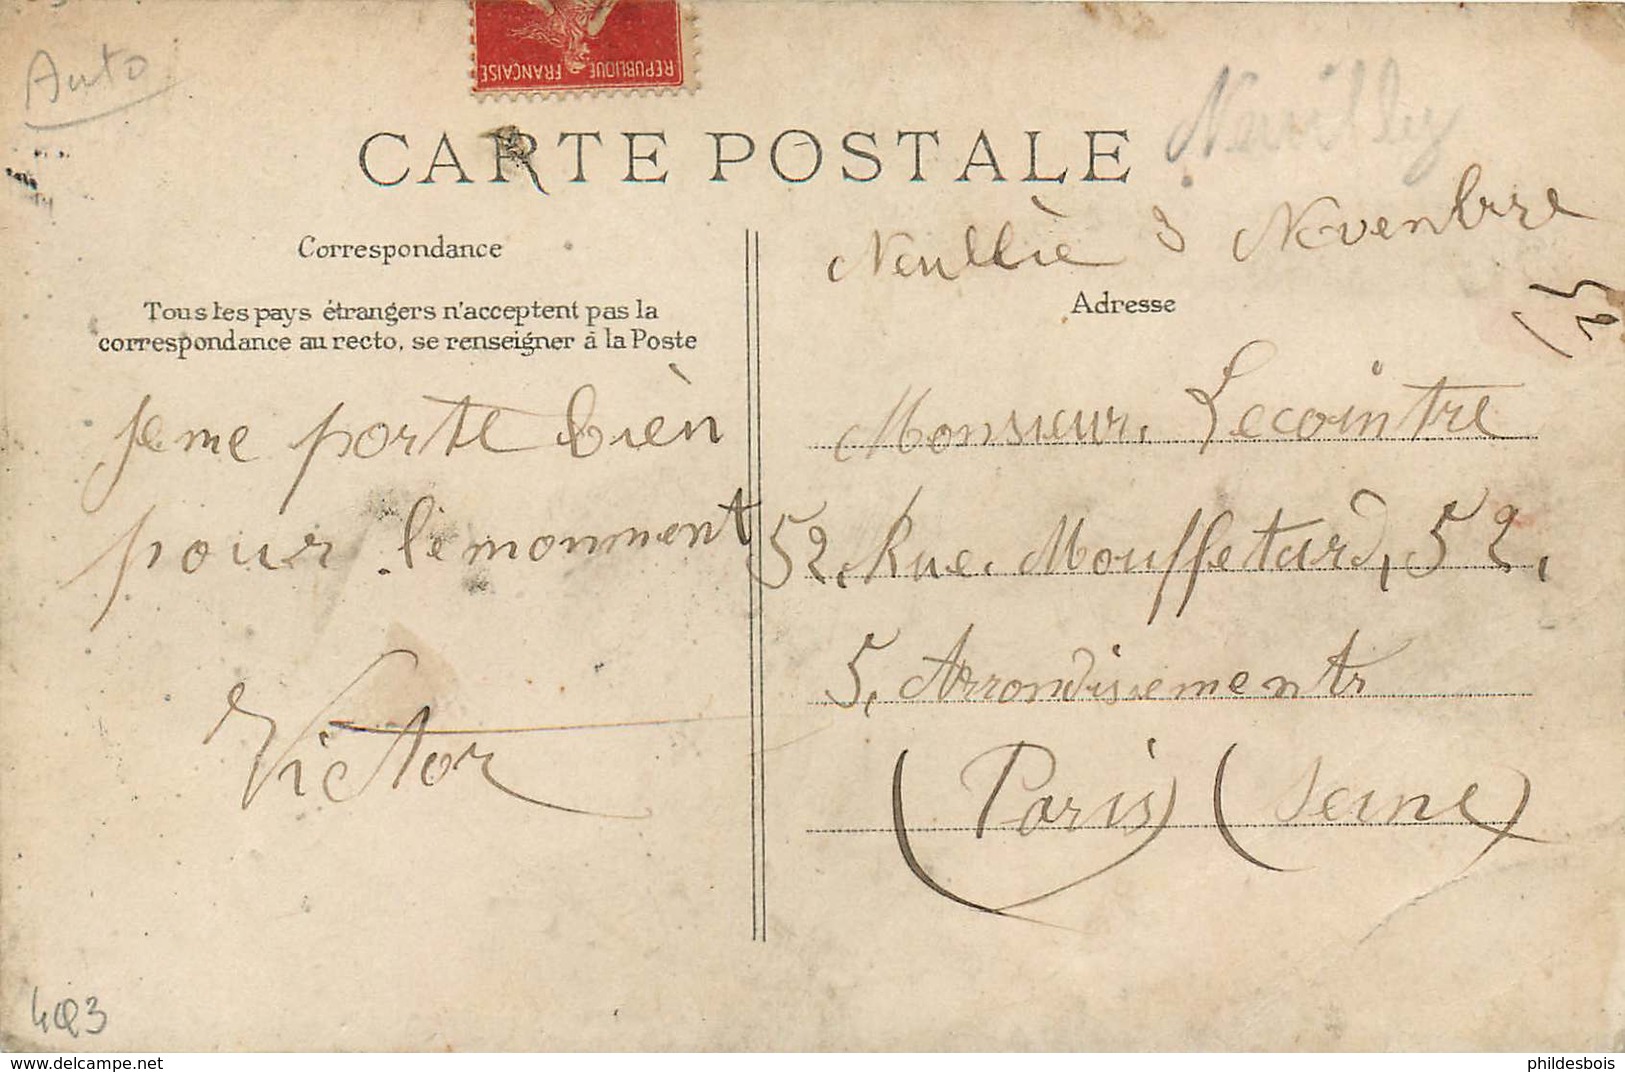 Auto
REPUBLIQUE FRANÇAISE
CARTE POSTALE
Neuilly
Neullie 3 Novenbre
Correspondance
Tous les pays étrangers n'acceptent pas la
correspondance au recto, se renseigner à la Poste
Adresse
Jeme porte bièn
pour lemonment
Victor
Monsieur, Lecointre
52, Rue. Mouffetard, 52,
5, Arrondissements
(Paris) (Seine)
403
delcampe.net
phildesbois